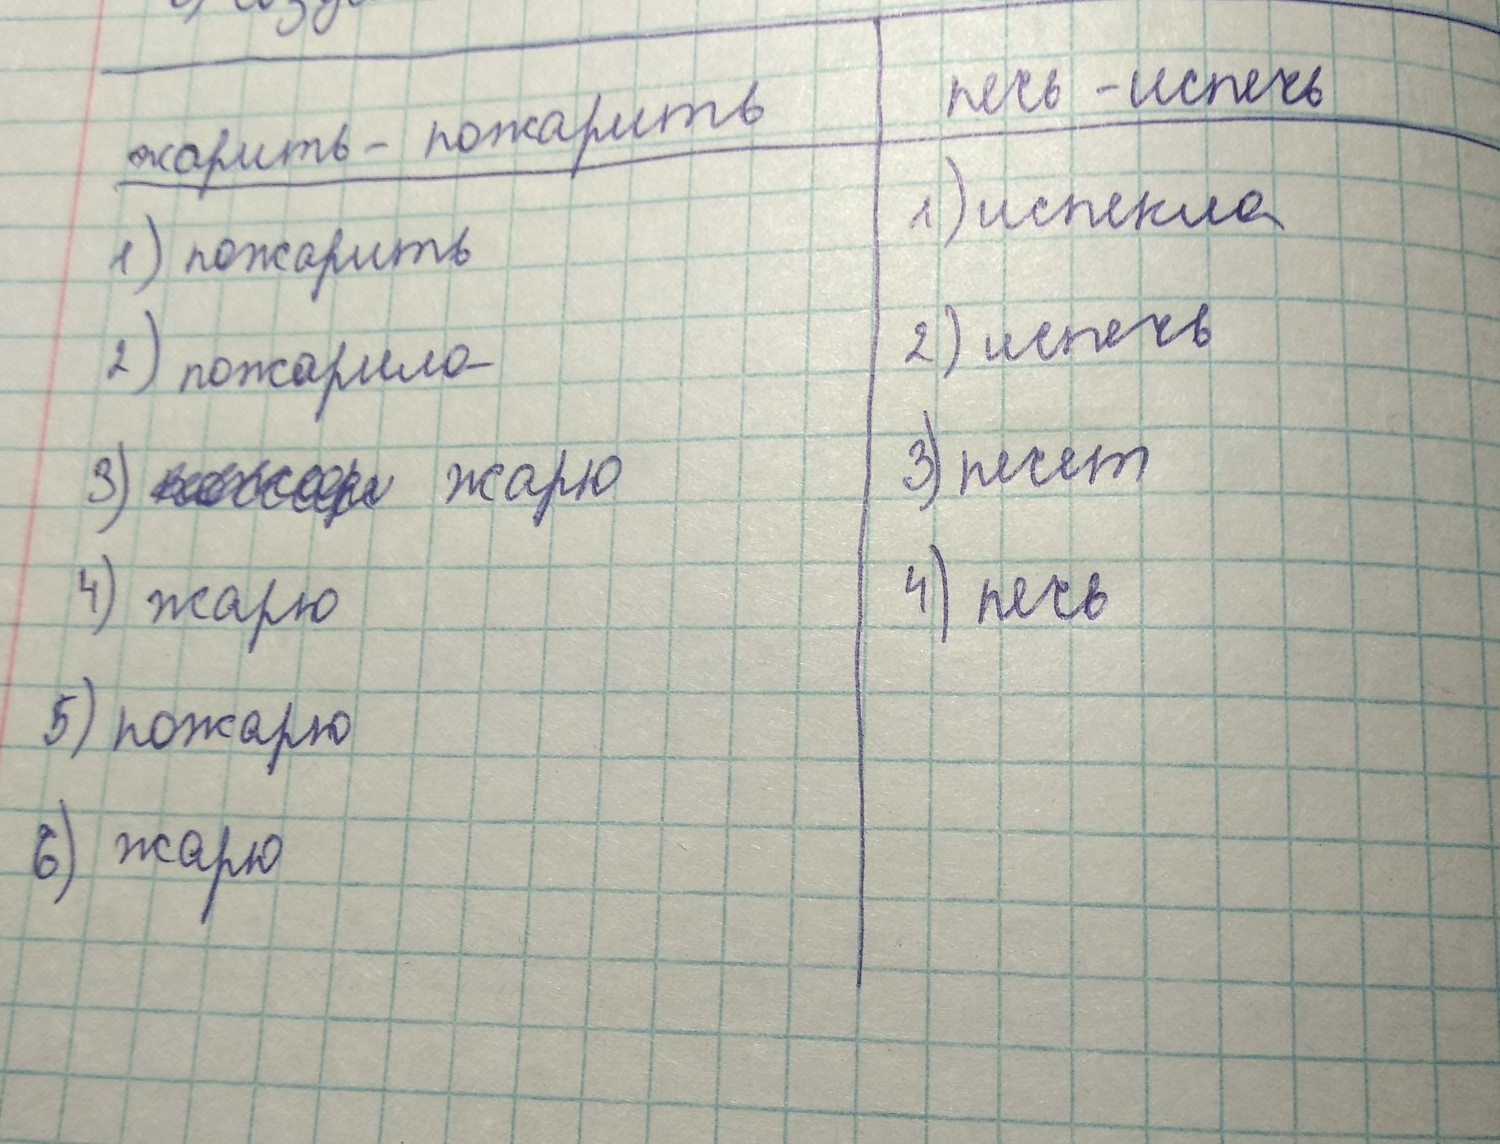 жарить - пожарить
1) пожарить
2) пожарила
3) жарю
4) жарю
5) пожарю
6) жарю
печь - испечь
1) испекла
2) испечь
3) печет
4) печь